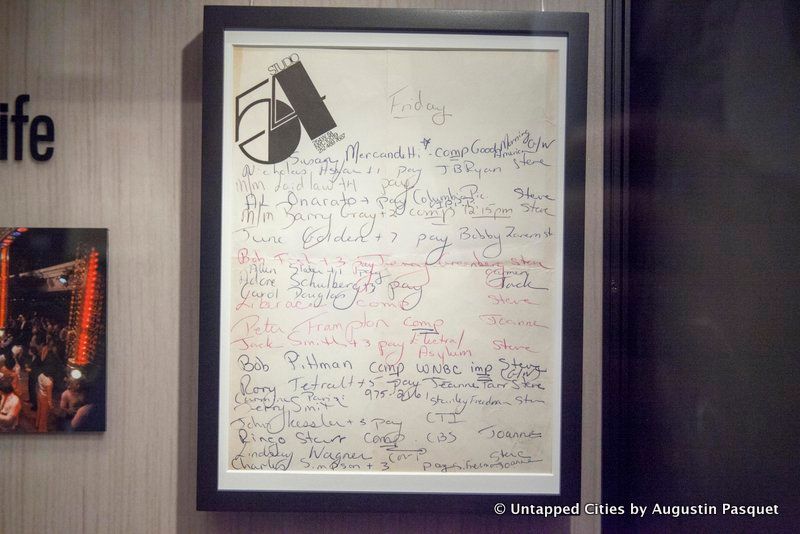 ife
STUDIO
54
Friday
Susan Mercandetti comp Good Morning America G/W
Nicholas +1 pay JB Ryan Steve
m/m Laidlaw +4 pay
AL Onarato + pay Columbia Pic Steve
m/m Barry Gray +2 comp 12:15pm Steve
June Golden +7 pay Bobby
Bob +3 pay Jerry Greenberg Steve
Allen +1 pay Carmen
Schulberg +3 pay Jack
Carol Douglas
Liberace comp Steve
Peter Frampton comp Joanne
Jack Smith +3 pay Electra/ Steve
Asylum
Bob Pittman comp WNBC imp Steve
(G/W)
Rory Tetrault +5 pay Jeanne Tarr Steve
Carmine Stanley Freedman Steve
Jerry Smit
John Kessler +5 pay CTI
Ringo Starr Comp. CBS Joanne
Lindsay Wagner Comp Steve
Charles Simpson +3 pay Joanne
© Untapped Cities by Augustin Pasquet